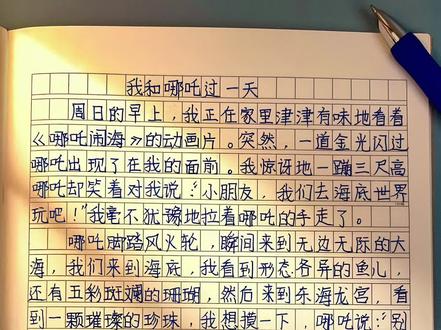 我和哪吒过一天
周日的早上，我正在家里津津有味地看着
《哪吒闹海》的动画片。突然，一道金光闪过
哪吒出现了在我的面前。我惊讶地一蹦三尺高
哪吒却笑着对我说：“小朋友，我们去海底世界
玩吧！”我毫不犹豫地拉着哪吒的手走了。
哪吒脚踏风火轮，瞬间来到无边无际的大
海，我们来到海底，我看到形态各异的鱼儿，
还有五彩斑斓的珊瑚，然后来到东海龙宫，看
到一颗璀璨的珍珠，我想摸一下，哪吒说：“别